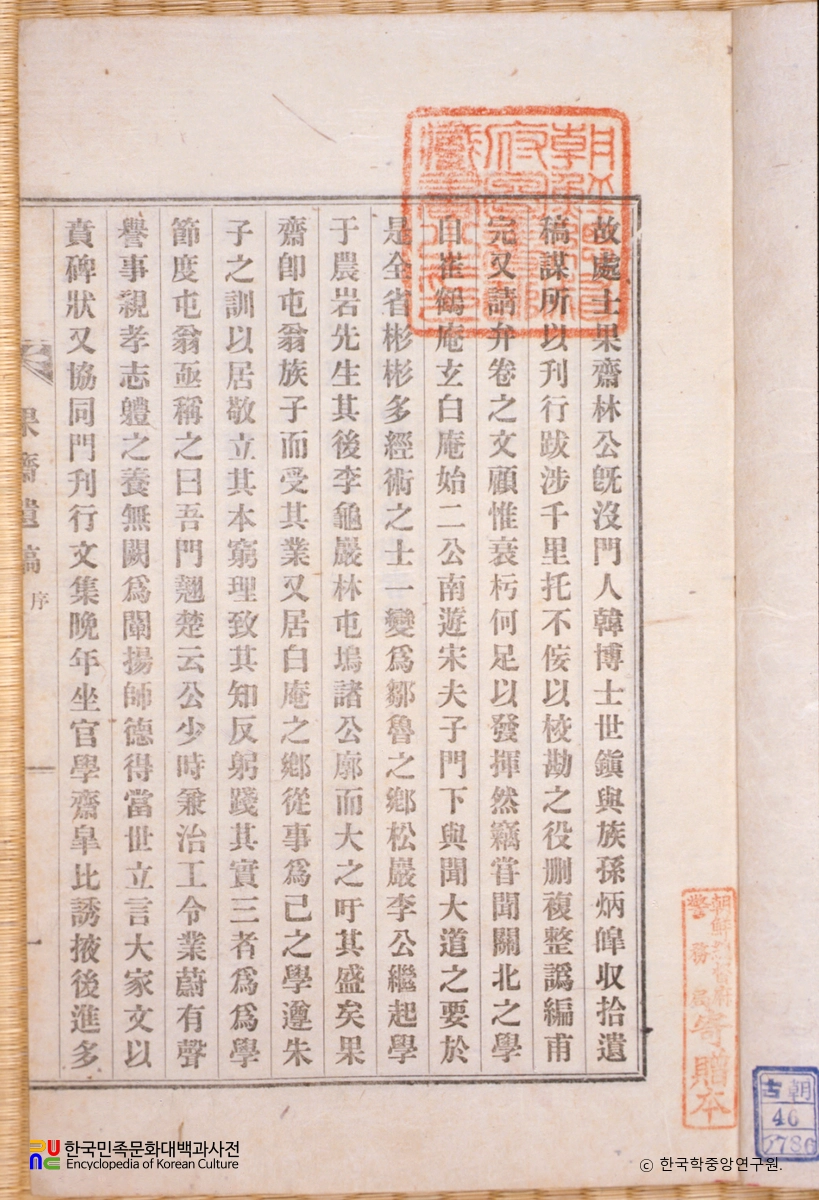 故處士果齋林公旣沒門人韓博士世鎭與族孫炳皥収拾遺
稿謀所以刊行跋涉千里托不侫以校勘之役删複整譌編甫
完又請弁卷之文顧惟衰朽何足以發揮然竊甞聞關北之學
自崔鶴庵玄白庵始二公南遊宋夫子門下與聞大道之要於
是全省彬彬多經術之士一變爲鄒魯之鄕松巖李公繼起學
于農岩先生其後李龜巖林屯塢諸公廓而大之吁其盛矣果
齋卽屯翁族子而受其業又居白庵之鄕從事爲己之學遵朱
子之訓以居敬立其本窮理致其知反躬踐其實三者爲爲學
節度屯翁亟稱之曰吾門翹楚云公少時兼治工令業蔚有聲
譽事親孝志軆之養無闕爲闡揚師德得當世立言大家文以
賁碑狀又協同門刊行文集晩年坐官學齋皐比誘掖後進多
果齋遺稿
序
一
朝鮮總督府
警務局
寄贈本
朝古
46
한국민족문화대백과사전
Encyclopedia of Korean Culture
© 한국학중앙연구원.